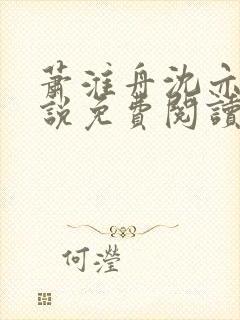 蕭淮舟沈亦
說免費閱讀
何瀅